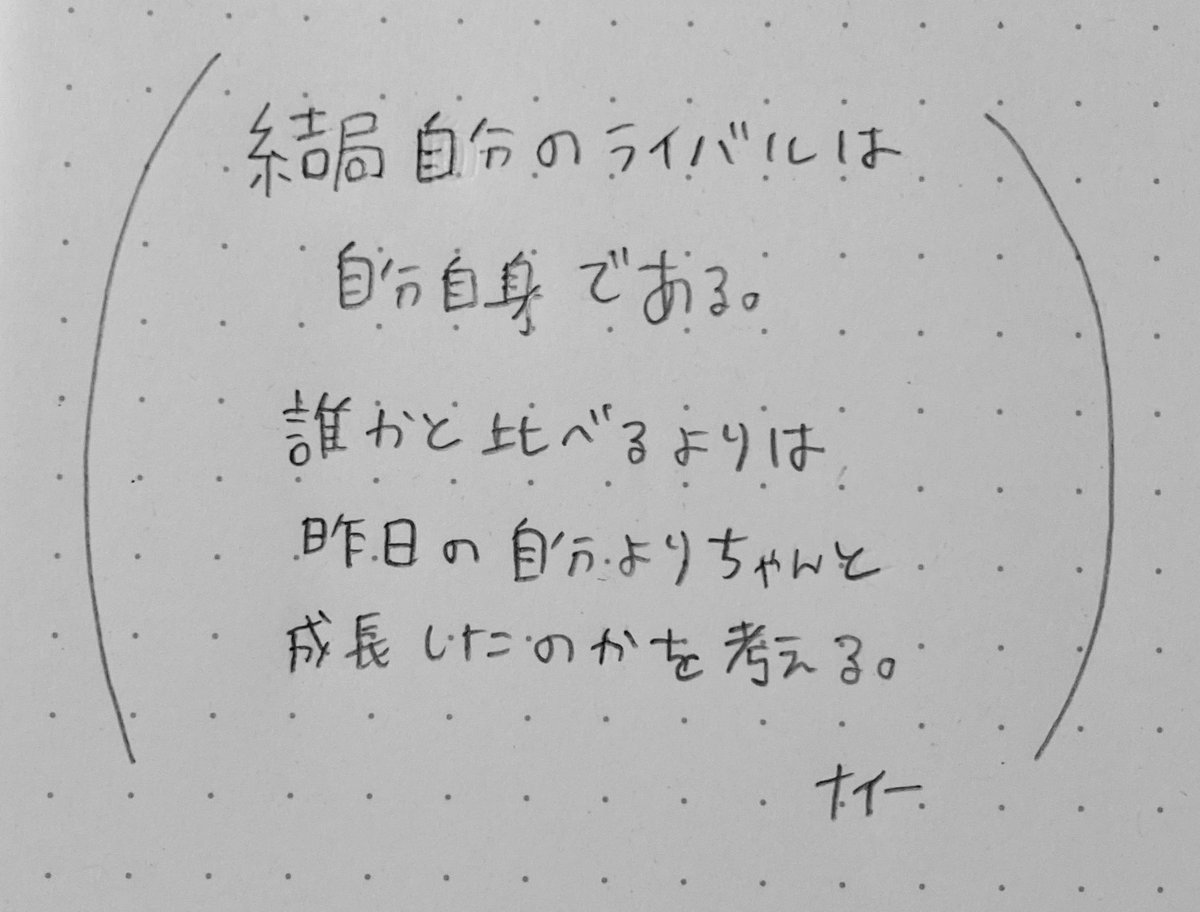 結局自分のライバルは
自分自身である。
誰かと比べるよりは
昨日の自分よりちゃんと
成長したのかを考える。
ナイー